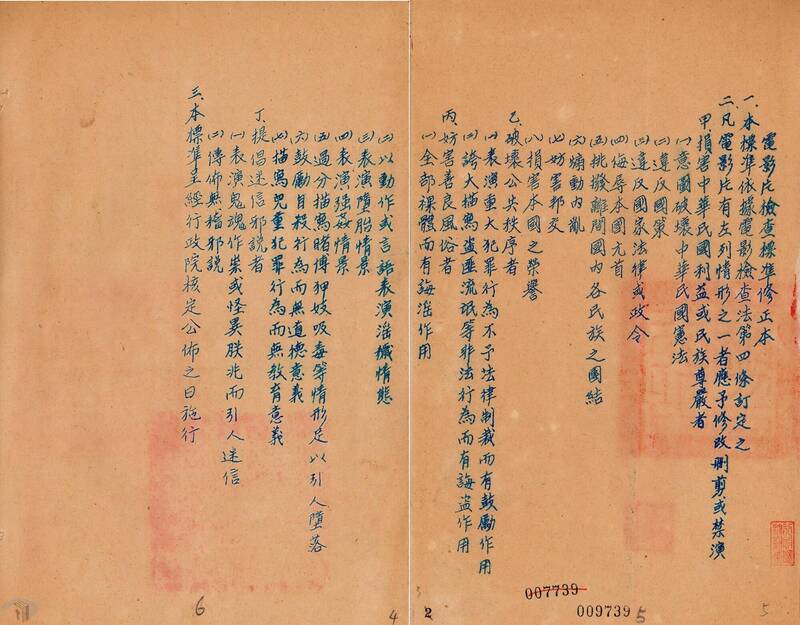 電影片檢查標準修正本
一、本標準依據電影檢查法第四條訂定之
二、凡電影片有左列情形之一者應予修改刪剪或禁演
甲、損害中華民國利益或民族尊嚴者
㈠意圖破壞中華民國憲法
㈡違反國策
㈢違反國家法律或政令
㈣侮辱本國元首
㈤挑撥離間國內各民族之團結
㈥煽動內亂
㈦妨害邦交
㈧損害本國之榮譽
乙、破壞公共秩序者
㈠表演重大犯罪行為不予法律制裁而有鼓勵作用
㈡誇大描寫盜匪流氓等非法行為而有誨盜作用
丙、妨害善良風俗者
㈠全部裸體而有誨淫作用
㈡以動作或言語表演淫穢情態
㈢表演墮胎情景
㈣表演强姦情景
㈤過分描寫賭博狎妓吸毒等情形足以引人墮落
㈥鼓勵自殺行為而無道德意義
㈦描寫兒童犯罪行為而無教育意義
丁、提倡迷信邪說者
㈠表演鬼魂作祟或怪異朕兆而引人迷信
㈡傳佈無稽邪說
三、本標準呈經行政院核定公佈之日施行
007739
009739
5
5
2
4
6